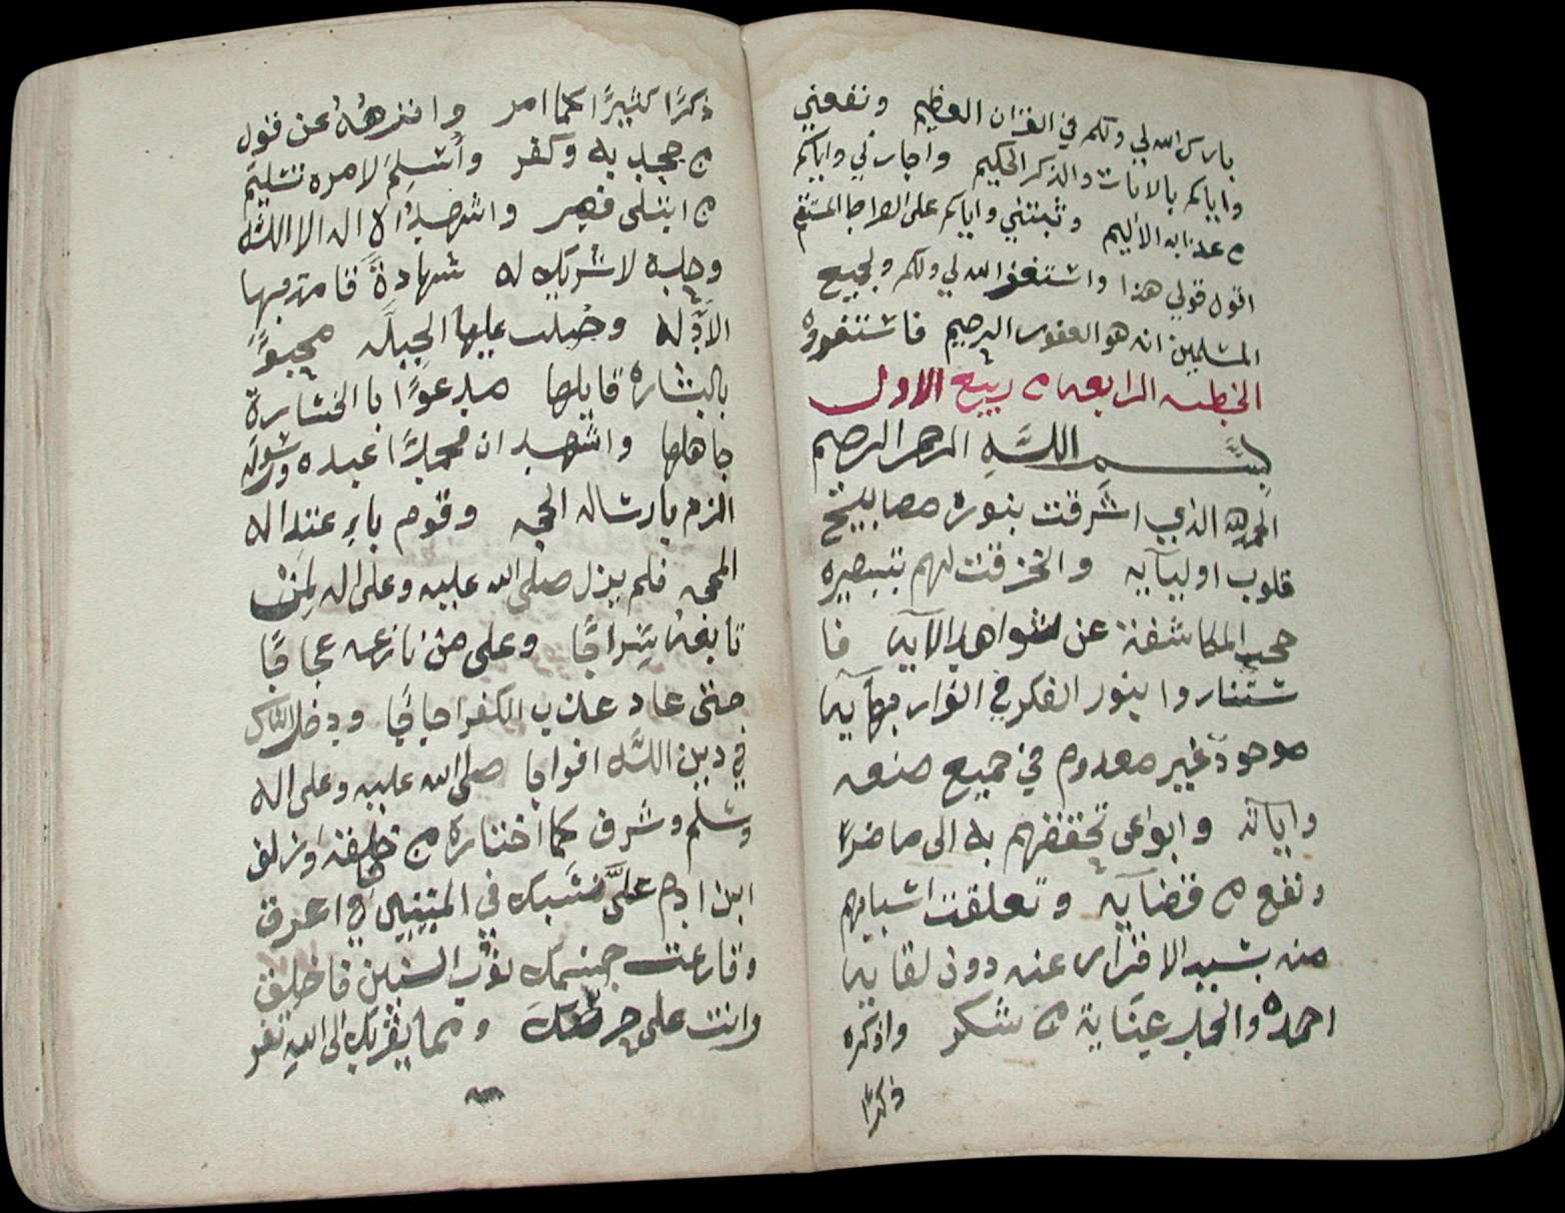 بارك الله لي ولكم في القران العظيم ونفعني
واياكم بالايات والذكر الحكيم واجارني واياكم
من عذابه الاليم وثبتني واياكم على الصراط المستقيم
اقول قولي هذا واستغفر الله لي ولكم ولجميع
المسلمين انه هو الغفور الرحيم فاستغفروه
الخطبه الرابعه من ربيع الاول
بسم الله الرحمن الرحيم
الحمد لله الذي اشرقت بنوره مصابيح
قلوب اوليآيه وانخرقت لهم بتبصيره
حجب المكاشفة عن شواهد الآيه فا
ستناروا بنور الفكر في انوار بهآيه
موجود غير معدوم في جميع صنعه
واياته تحققهم به الى ما ضر
ونفع من قضآيه وتعلقت اسبابهم
منه بسبب الاقرار عنه دون لقايه
احمده والحمد عناية من شكر واذكره
ذكرًا
ذكرًا كثيرًا كما امر وانزهُهُ عن قول
من جحد به وكفر وأسلم لامره تسليم
من ابتلى فصبر واشهد ان لا اله الا الله
وحده لا شريك له شهادةً قامت بها
الادله وجبلت عليها الجبله محبوًا
بالبشاره قايلها مدعوًا بالخسارة
جاهلها واشهد ان محمدًا عبده ورسوله
الزم بارساله الحجه وقوم
المحجه فلم يزل صلى الله عليه وعلى اله لمن
تابعه سراجًا وعلى من نازعه عجاجًا
حتى عاد عذب الكفر اجاجًا ودخل الناس
في دين الله افواجا صلى الله عليه وعلى اله
وسلم وشرف كما اختاره من خليقته وازلف
ابن ادم علق نسبك في الميتين اعرق
وقارعت جسمك نوب السنين فاخلق
وانت على ومما يقربك الى الله تفر